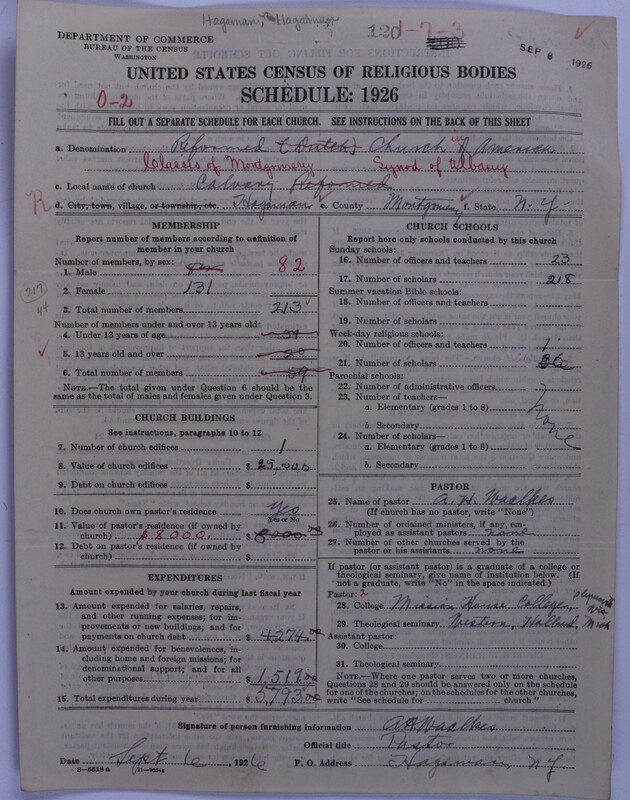 Hagaman, Hagaman
120 1-7-3
DEPARTMENT OF COMMERCE
BUREAU OF THE CENSUS
WASHINGTON
SEP 8 1926
UNITED STATES CENSUS OF RELIGIOUS BODIES
SCHEDULE: 1926
0-2
FILL OUT A SEPARATE SCHEDULE FOR EACH CHURCH. SEE INSTRUCTIONS ON THE BACK OF THIS SHEET
a. Denomination Reformed (Dutch) Church in America
Classis of Montgomery Synod of Albany
c. Local name of church Calvary Reformed
R
d. City, town, village, or township, etc. Hagaman e. County Montgomery f. State N. Y.
MEMBERSHIP
Report number of members according to definition of
member in your church
Number of members, by sex:
1. Male 82
2. Female 131
3. Total number of members 213
Number of members under and over 13 years old:
4. Under 13 years of age 39
5. 13 years old and over 20
6. Total number of members 59
NOTE.—The total given under Question 6 should be
same as the total of males and females given under Question 3.
CHURCH BUILDINGS
See instructions, paragraphs 10 to 12
7. Number of church edifices 1
8. Value of church edifices $ 25,000
9. Debt on church edifices $
10. Does church own pastor's residence Yes
Yes or No
11. Value of pastor's residence (if owned by
church) $8000. $ 8000.00
12. Debt on pastor's residence (if owned by
church) $
EXPENDITURES
Amount expended by your church during last fiscal year
13. Amount expended for salaries, repairs,
and other running expenses; for im-
provements or new buildings; and for
payments on church debt $ 4274.00
14. Amount expended for benevolences, in-
cluding home and foreign missions; for
denominational support; and for all
other purposes $ 1,519.00
15. Total expenditures during year $ 5,793.00
CHURCH SCHOOLS
Report here only schools conducted by this church
Sunday schools:
16. Number of officers and teachers 23
17. Number of scholars 218
Summer vacation Bible schools:
18. Number of officers and teachers
19. Number of scholars
Week-day religious schools:
20. Number of officers and teachers 1
21. Number of scholars
Parochial schools:
22. Number of administrative officers
23. Number of teachers—
a. Elementary (grades 1 to 8)
b. Secondary
None
24. Number of scholars—
a. Elementary (grades 1 to 8)
b. Secondary
PASTOR
25. Name of pastor A. H. Waalkes
(If church has no pastor, write "None")
26. Number of ordained ministers, if any, em-
ployed as assistant pastors none
27. Number of other churches served by the
pastor or his assistants none
If pastor (or assistant pastor) is a graduate of a college or
theological seminary, give name of institution below. (If
not a graduate, write "No" in the space indicated.)
Pastor: 2
28. College Mission House College, Plymouth Wis
29. Theological seminary Western, Holland, Mich
Assistant pastor:
30. College
31. Theological seminary
NOTE.—Where one pastor serves two or more churches,
Questions 28 and 29 should be answered only on the schedule
for one of the churches; on the schedules for the other churches,
write "See schedule for church."
Signature of person furnishing information A H Waalkes
Official title Pastor
Date Sept 6, 1926 P. O. Address Hagaman, N Y
8—5518 a 11—9064c